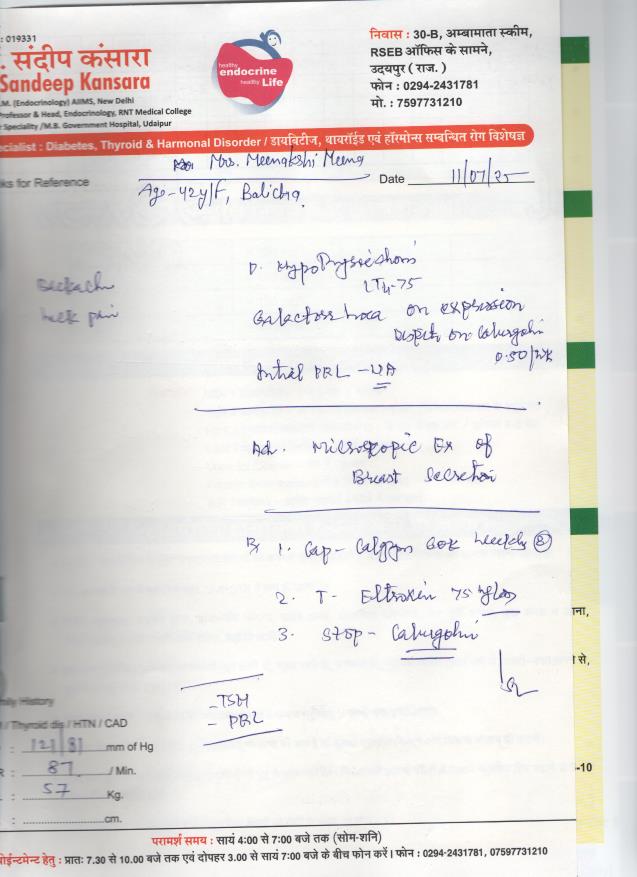 : 019331
. संदीप कंसारा
Sandeep Kansara
.M. (Endocrinology) AIIMS, New Delhi
Professor & Head, Endocrinology, RNT Medical College
r Speciality /M.B. Government Hospital, Udaipur
healthy
endocrine
healthy Life
निवास : 30-B, अम्बामाता स्कीम,
RSEB ऑफिस के सामने,
उदयपुर ( राज. )
फोन : 0294-2431781
मो. : 7597731210
ecialist : Diabetes, Thyroid & Harmonal Disorder / डायबिटीज, थायरॉईड एवं हॉरमोन्स सम्बन्धित रोग विशेषज्ञ
Mrs. Meenakshi Meena
nks for Reference
Age-42y/F, Balicha
Date 11/07/25
Backache
neck pain
LT4-75
Galactorrhoea on expression
on
0.50/wk
Initial PRL -
Ad. Microscopic Ex of
Breast Secretion
Rx 1. Cap- 60K weekly 8
2. T- Eltroxin 75
3. STOP-
- TSH
- PRL
mily History
/ Thyroid dis / HTN / CAD
: 121/81 mm of Hg
R : 87 / Min.
: 57 Kg.
: cm.
ाना,
से,
-10
परामर्श समय : सायं 4:00 से 7:00 बजे तक (सोम-शनि)
पोईन्टमेन्ट हेतु : प्रातः 7.30 से 10.00 बजे तक एवं दोपहर 3.00 से सायं 7:00 बजे के बीच फोन करें। फोन : 0294-2431781, 07597731210